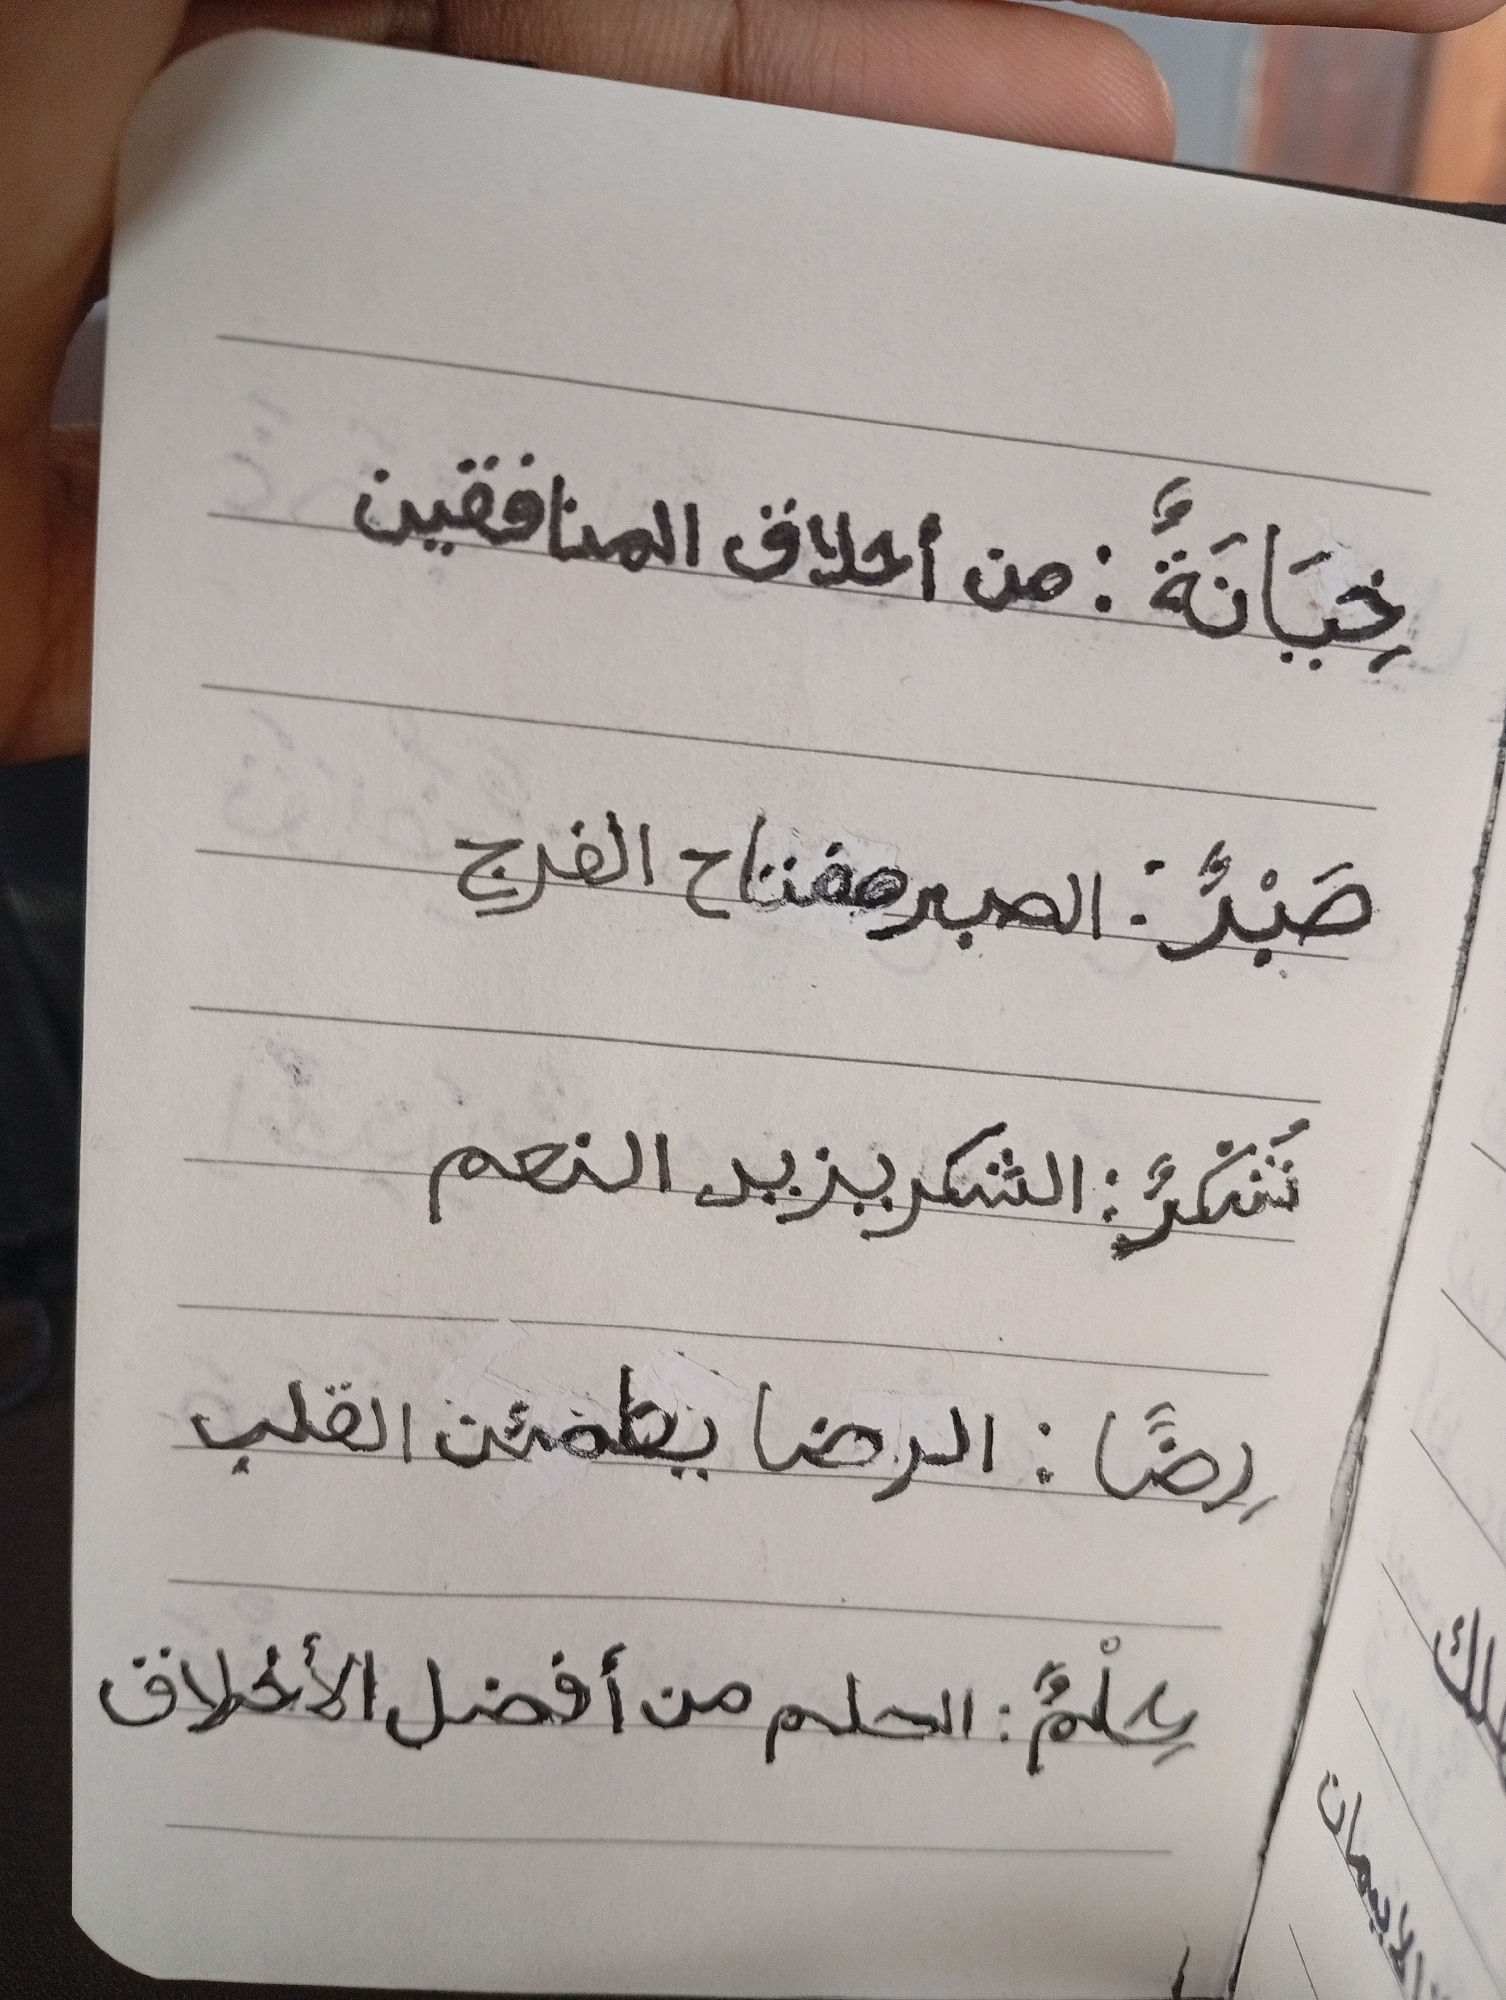 خِيَانَةٌ : من أخلاق المنافقين
صَبْرٌ : الصبر مفتاح الفرج
شُكْرٌ : الشكر يزيد النعم
رِضًا : الرضا يطمئن القلب
حِلْمٌ : الحلم من أفضل الأخلاق
الإيمان